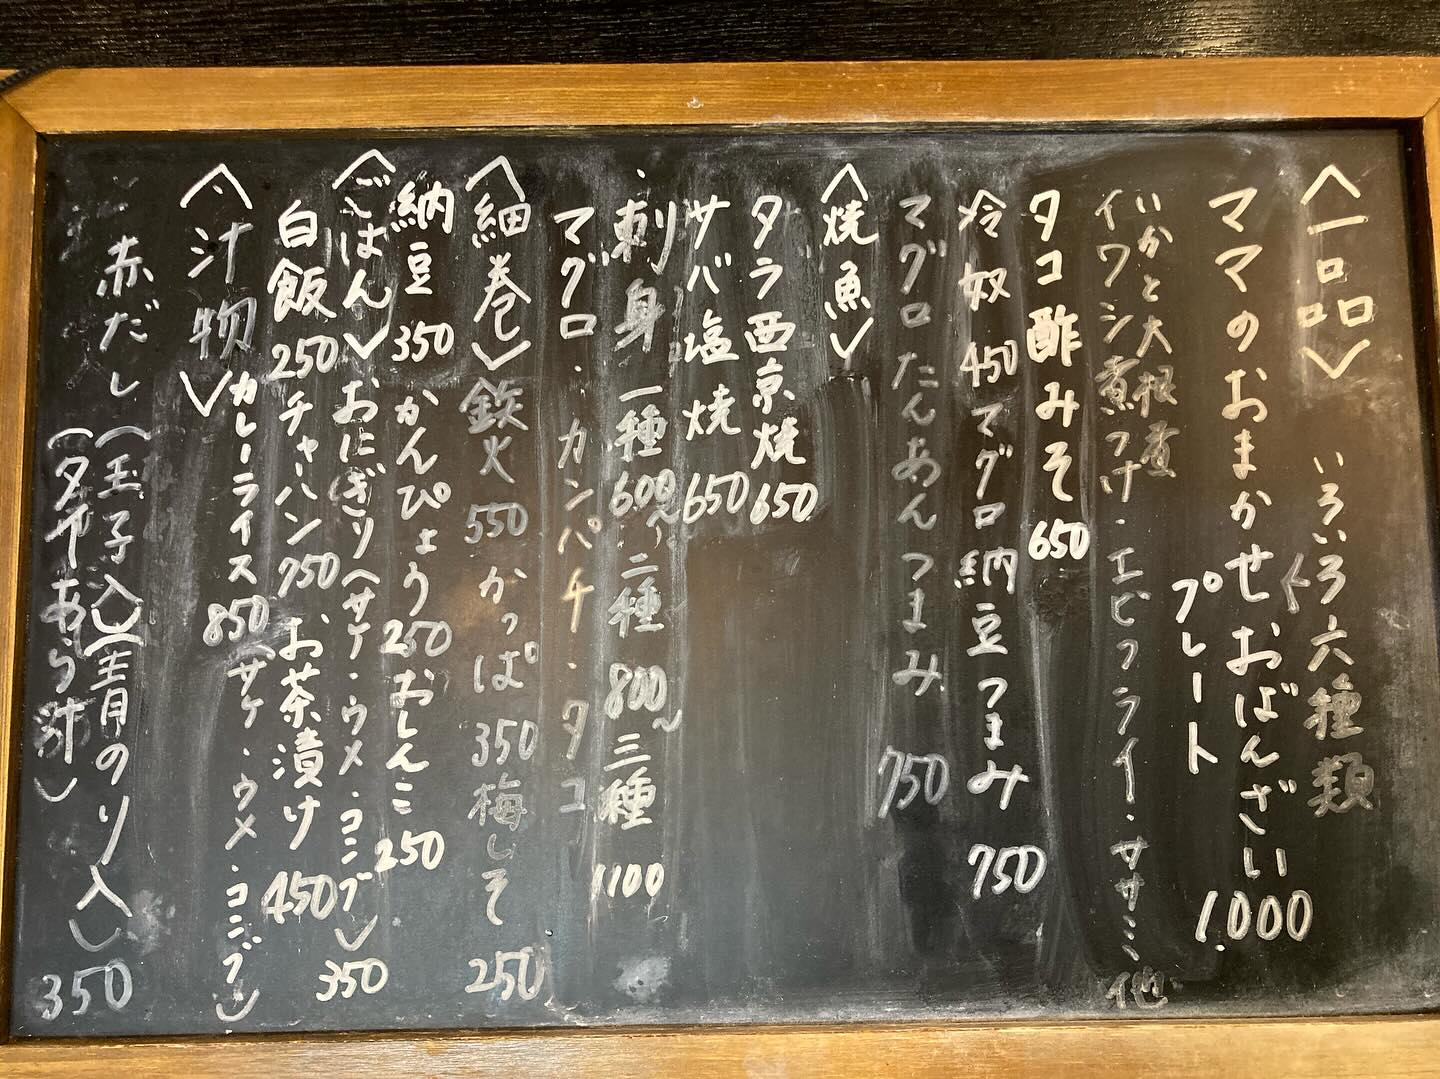 〈一品〉
いろいろ六種類
ママのおまかせおばんざい
プレート
1.000
いかと大根煮
イワシ煮つけ・エビフライ・ササミ他
タコ酢みそ 650
冷奴 450 マグロ納豆つまみ 750
マグロたんあんつまみ 750
〈焼魚〉
タラ西京焼 650
サバ塩焼 650
・刺身 一種 600〜 二種 800〜 三種 1100
マグロ・カンパチ・タコ
〈細巻〉鉄火 550 かっぱ 350 梅しそ 250
納豆 350 かんぴょう 250 おしんこ 250
〈ごはん〉おにぎり(サケ・ウメ・コンブ) 350
白飯 250 チャーハン 750 お茶漬け 450
(サケ・ウメ・コンブ)
カレーライス 850
〈汁物〉
赤だし(玉子入)(青のり入) 350
(タイあら汁)